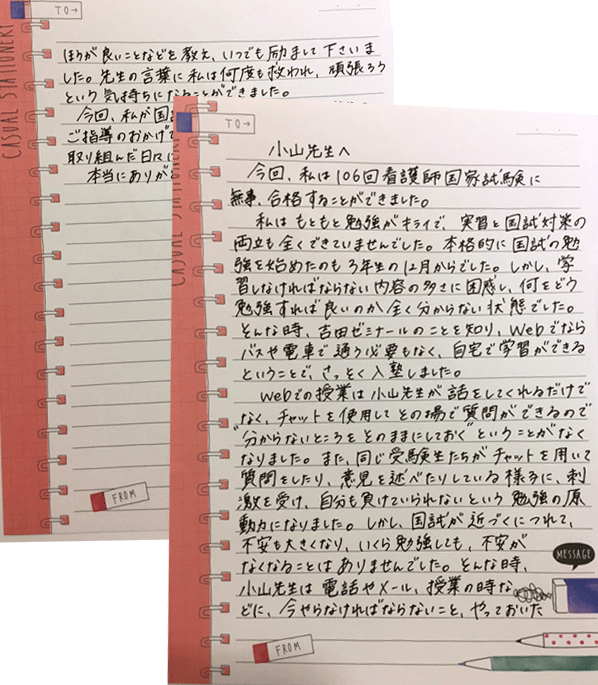 小山先生へ
今回、私は106回看護師国家試験に
無事、合格することができました。
私はもともと勉強がキライで、実習と国試対策の
両立も全くできていませんでした。本格的に国試の勉
強を始めたのも3年生の12月からでした。しかし、学
習しなければならない内容の多さに困惑し、何をどう
勉強すれば良いのか全く分からない状態でした。
そんな時、吉田ゼミナールのことを知り、Webでなら
バスや電車で通う必要もなく、自宅で学習ができる
ということで、さっそく入塾しました。
Webでの授業は小山先生が話をしてくれるだけで
なく、チャットを使用してその場で質問ができるので
"分からないところをそのままにしておく"ということがなく
なりました。また、同じ受験生たちがチャットを用いて
質問をしたり、意見を述べたりしている様子に、刺
激を受け、自分も負けていられないという勉強の原
動力になりました。しかし、国試が近づくにつれて、
不安も大きくなり、いくら勉強しても、不安が
なくなることはありませんでした。そんな時、
小山先生は電話やメール、授業の時な
どに、今やらなければならないこと、やっておいた
TO→
MESSAGE
FROM
CASUAL STATIONERY
TO→
ほうが良いことなどを教え、いつでも励まして下さいま
した。先生の言葉に私は何度も救われ、頑張ろう
という気持ちになることができました。
今回、私が国試
ご指導のおかげで
取り組んだ日々に
本当にありが
FROM